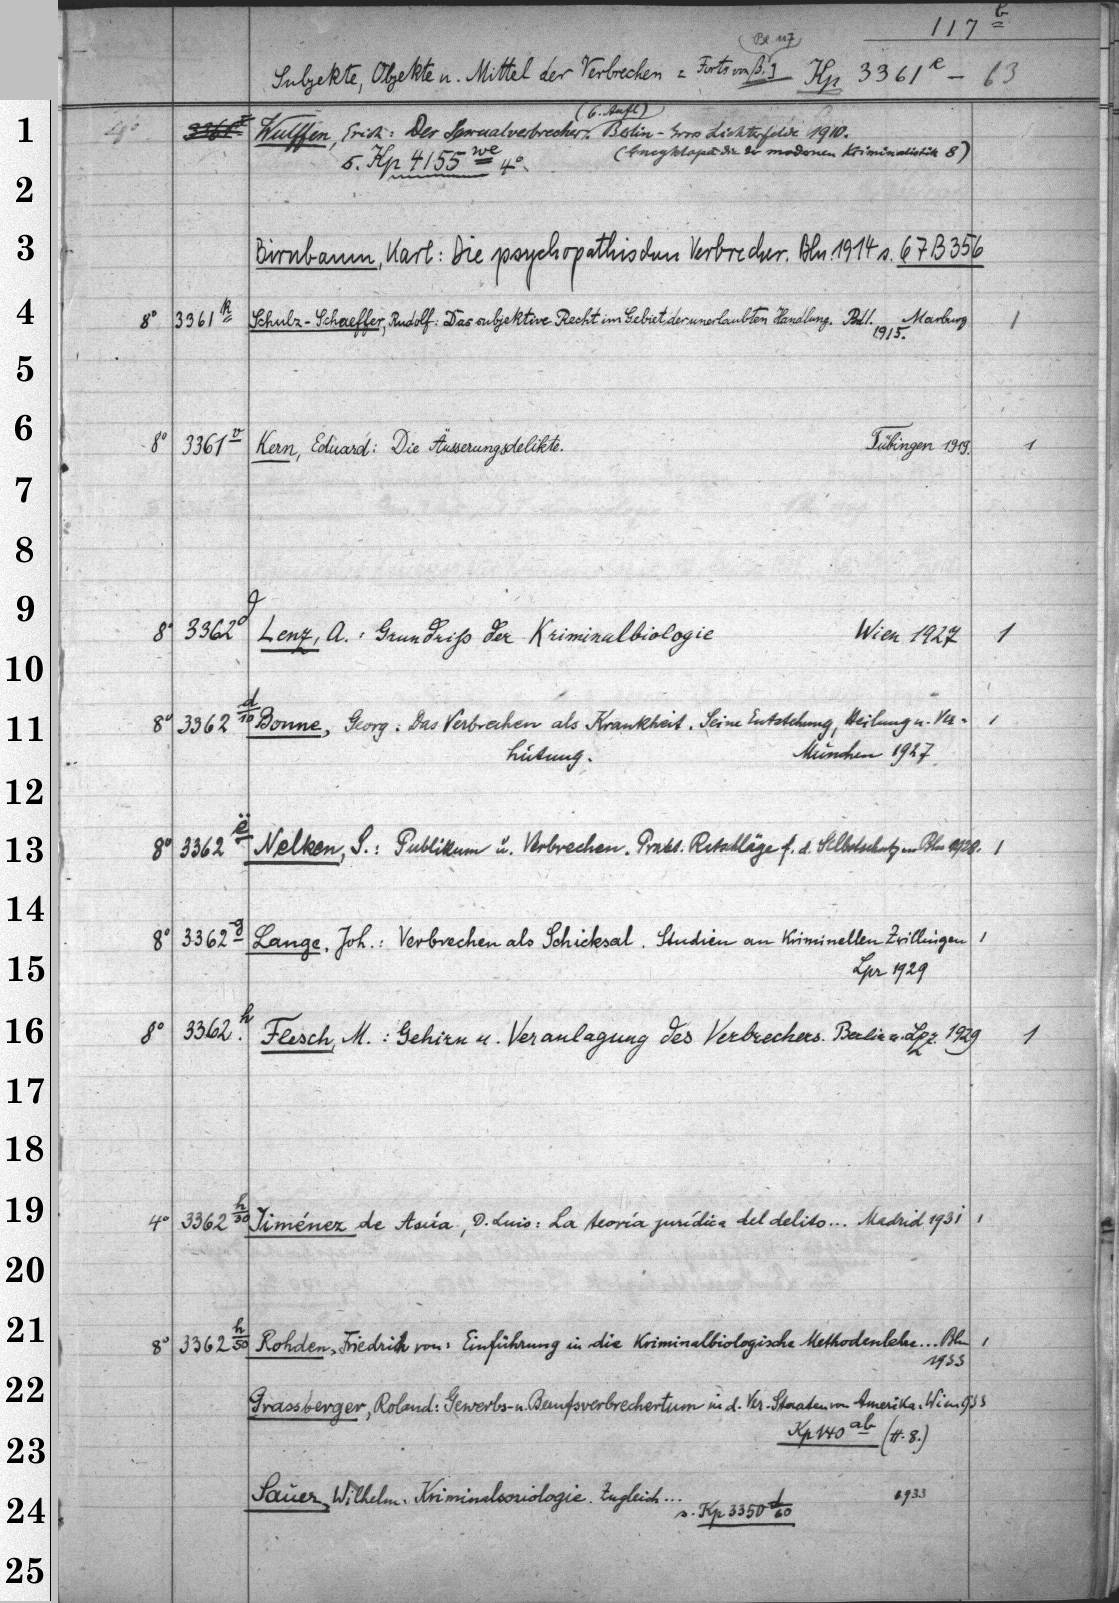 117 b
Bl 117
Subjekte, Objekte u. Mittel der Verbrechen = Forts von Bl. Kp 3361 k – 63
(6. Aufl)
1 4° Wulffen, Erich: Der Sexualverbrecher. Berlin-Gross Lichterfelde 1910.
(Encyklopädie der modernen Kriminalistik 8)
s. Kp 4155 we 4°.
2
3 Birnbaum, Karl: Die psychopathischen Verbrecher. Bln. 1914 s. 67 B 356
4 8° 3361 k Schulz-Schaeffer, Rudolf: Das subjektive Recht im Gebiet der unerlaubten Handlung. Bd.1. Marburg 1
1915.
5
6 8° 3361 v Kern, Eduard: Die Äusserungsdelikte. Tübingen 1919. 1
7
8
9 8° 3362 g Lenz, A.: Grundriß der Kriminalbiologie Wien 1927 1
10
11 8° 3362 d/10 Bonne, Georg: Das Verbrechen als Krankheit. Seine Entstehung, Heilung u. Ver- 1
hütung. München 1927
12
13 8° 3362 e Nelken, S.: Publikum u. Verbrechen. Prakt. Ratschläge f. d. Selbstschutz Bln 1928. 1
14 8° 3362 g Lange, Joh.: Verbrechen als Schicksal. Studien an Kriminellen Zwillingen 1
15 Lpz 1929
16 8° 3362 h Flesch, M.: Gehirn u. Veranlagung des Verbrechers. Berlin u. Lpz. 1929 1
17
18
19 4° 3362 h/30 Jiménez de Asúa, D. Luis: La teoría jurídica del delito... Madrid 1931 1
20
21 8° 3362 h/50 Rohden, Friedrich von: Einführung in die Kriminalbiologische Methodenlehre... Bln 1
1933
22 Grassberger, Roland: Gewerbs- u. Berufsverbrechertum in d. Ver. Staaten von Amerika. Wien 1933
23 Kp 140 ab (H. 8.)
24 Sauer, Wilhelm: Kriminalsoziologie. Zugleich... 1933
s. Kp 3350 d/60
25